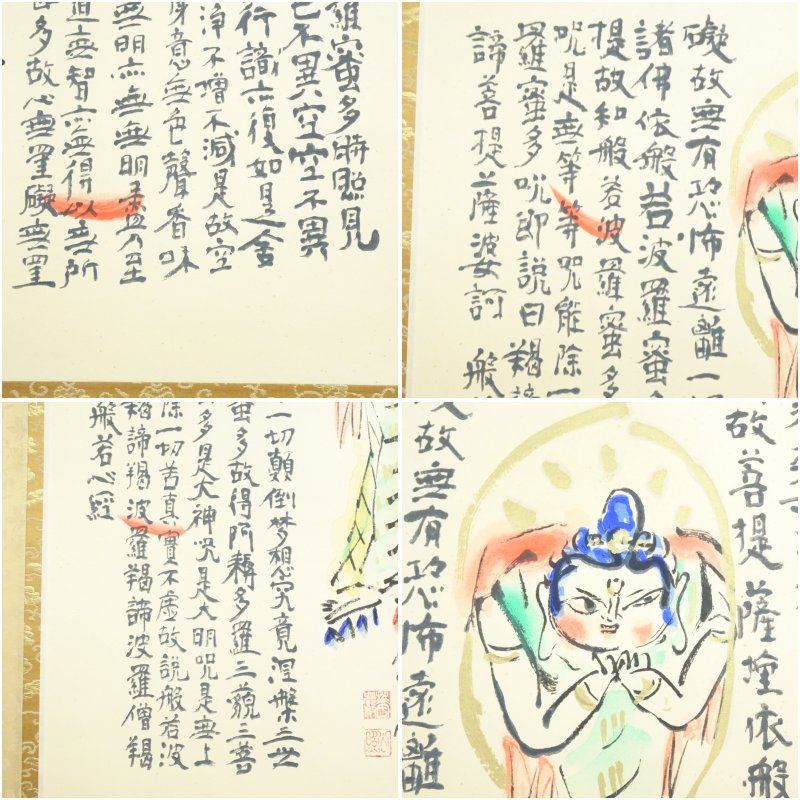 羅蜜多時照見
不異空空不異
行識亦復如是舍
淨不增不減是故空
身意無色聲香味
無明亦無無明盡乃至
道無智亦無得以無所
多故心無罣礙無罣
礙故無有恐怖遠離一
諸佛依般若波羅蜜
提故知般若波羅蜜多
咒是無等等咒能除一
羅蜜多咒即說曰羯
諦菩提薩婆訶 般
一切顛倒夢想究竟涅槃三世
蜜多故得阿耨多羅三藐三菩
多是大神咒是大明咒是無上
除一切苦真實不虛故說般若波
羯諦羯波羅羯諦波羅僧羯
般若心經
故菩提薩埵依般
故無有恐怖遠離